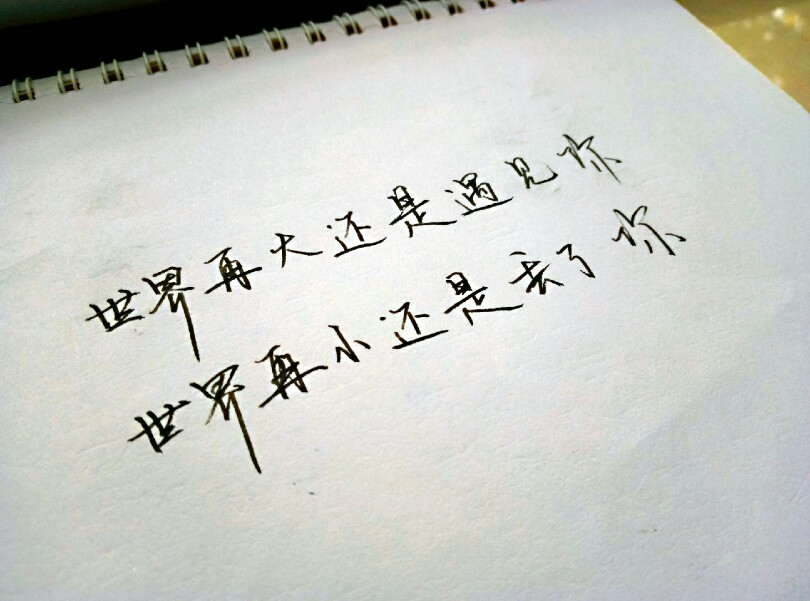 世界再大还是遇见你
世界再小还是丢了你